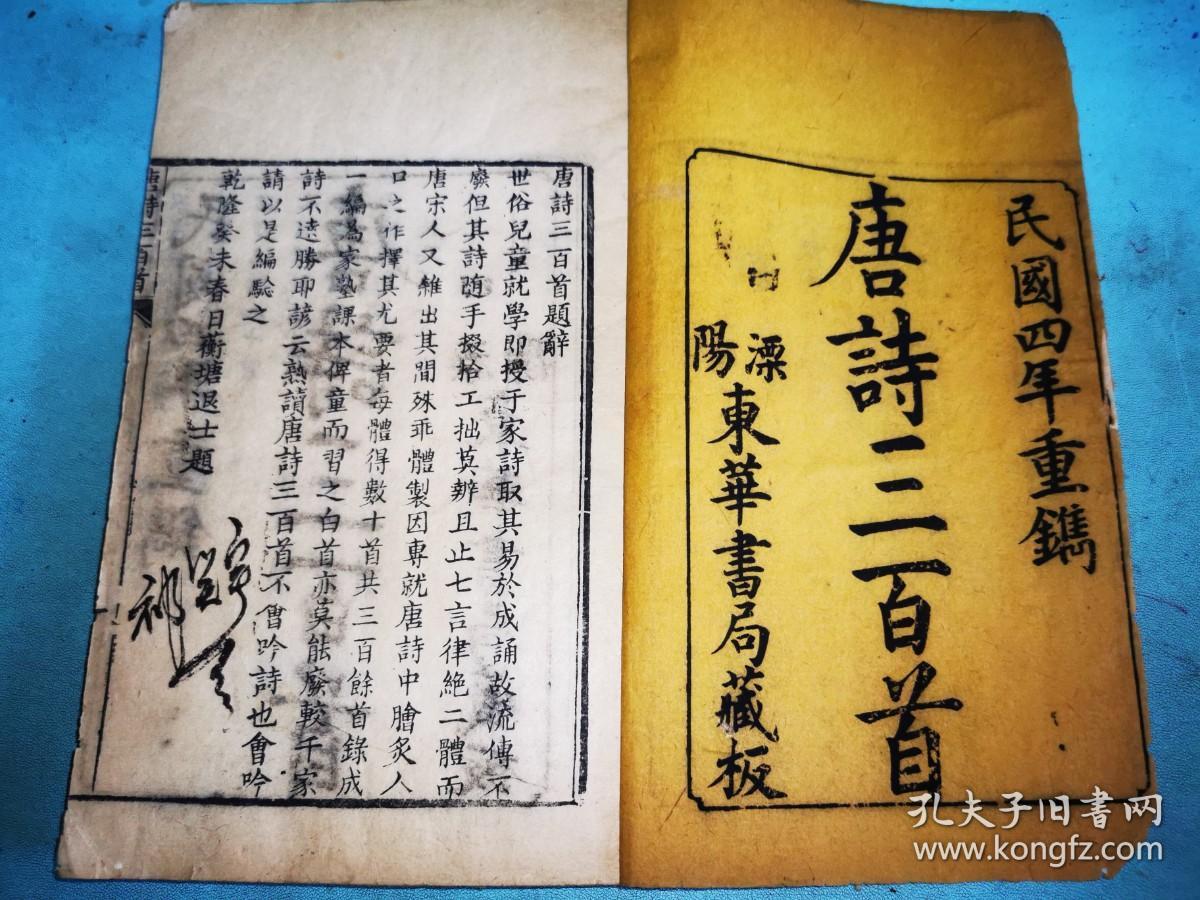 民國四年重鐫
唐詩三百首
溧陽
東華書局藏板
唐詩三百首題辭
世俗兒童就學即授于家詩取其易於成誦故流傳不
廢但其詩随手掇拾工拙莫辨且止七言律絕二體而
唐宋人又雜出其間殊乖體製因專就唐詩中膾炙人
口之作擇其尤要者每體得數十首共三百餘首錄成
一編為家塾課本俾童而習之白首亦莫能廢較千家
詩不遠勝耶諺云熟讀唐詩三百首不會吟詩也會吟
請以是編驗之
乾隆癸未春日蘅塘退士題
唐詩三百首
孔夫子旧书网
www.kongfz.com